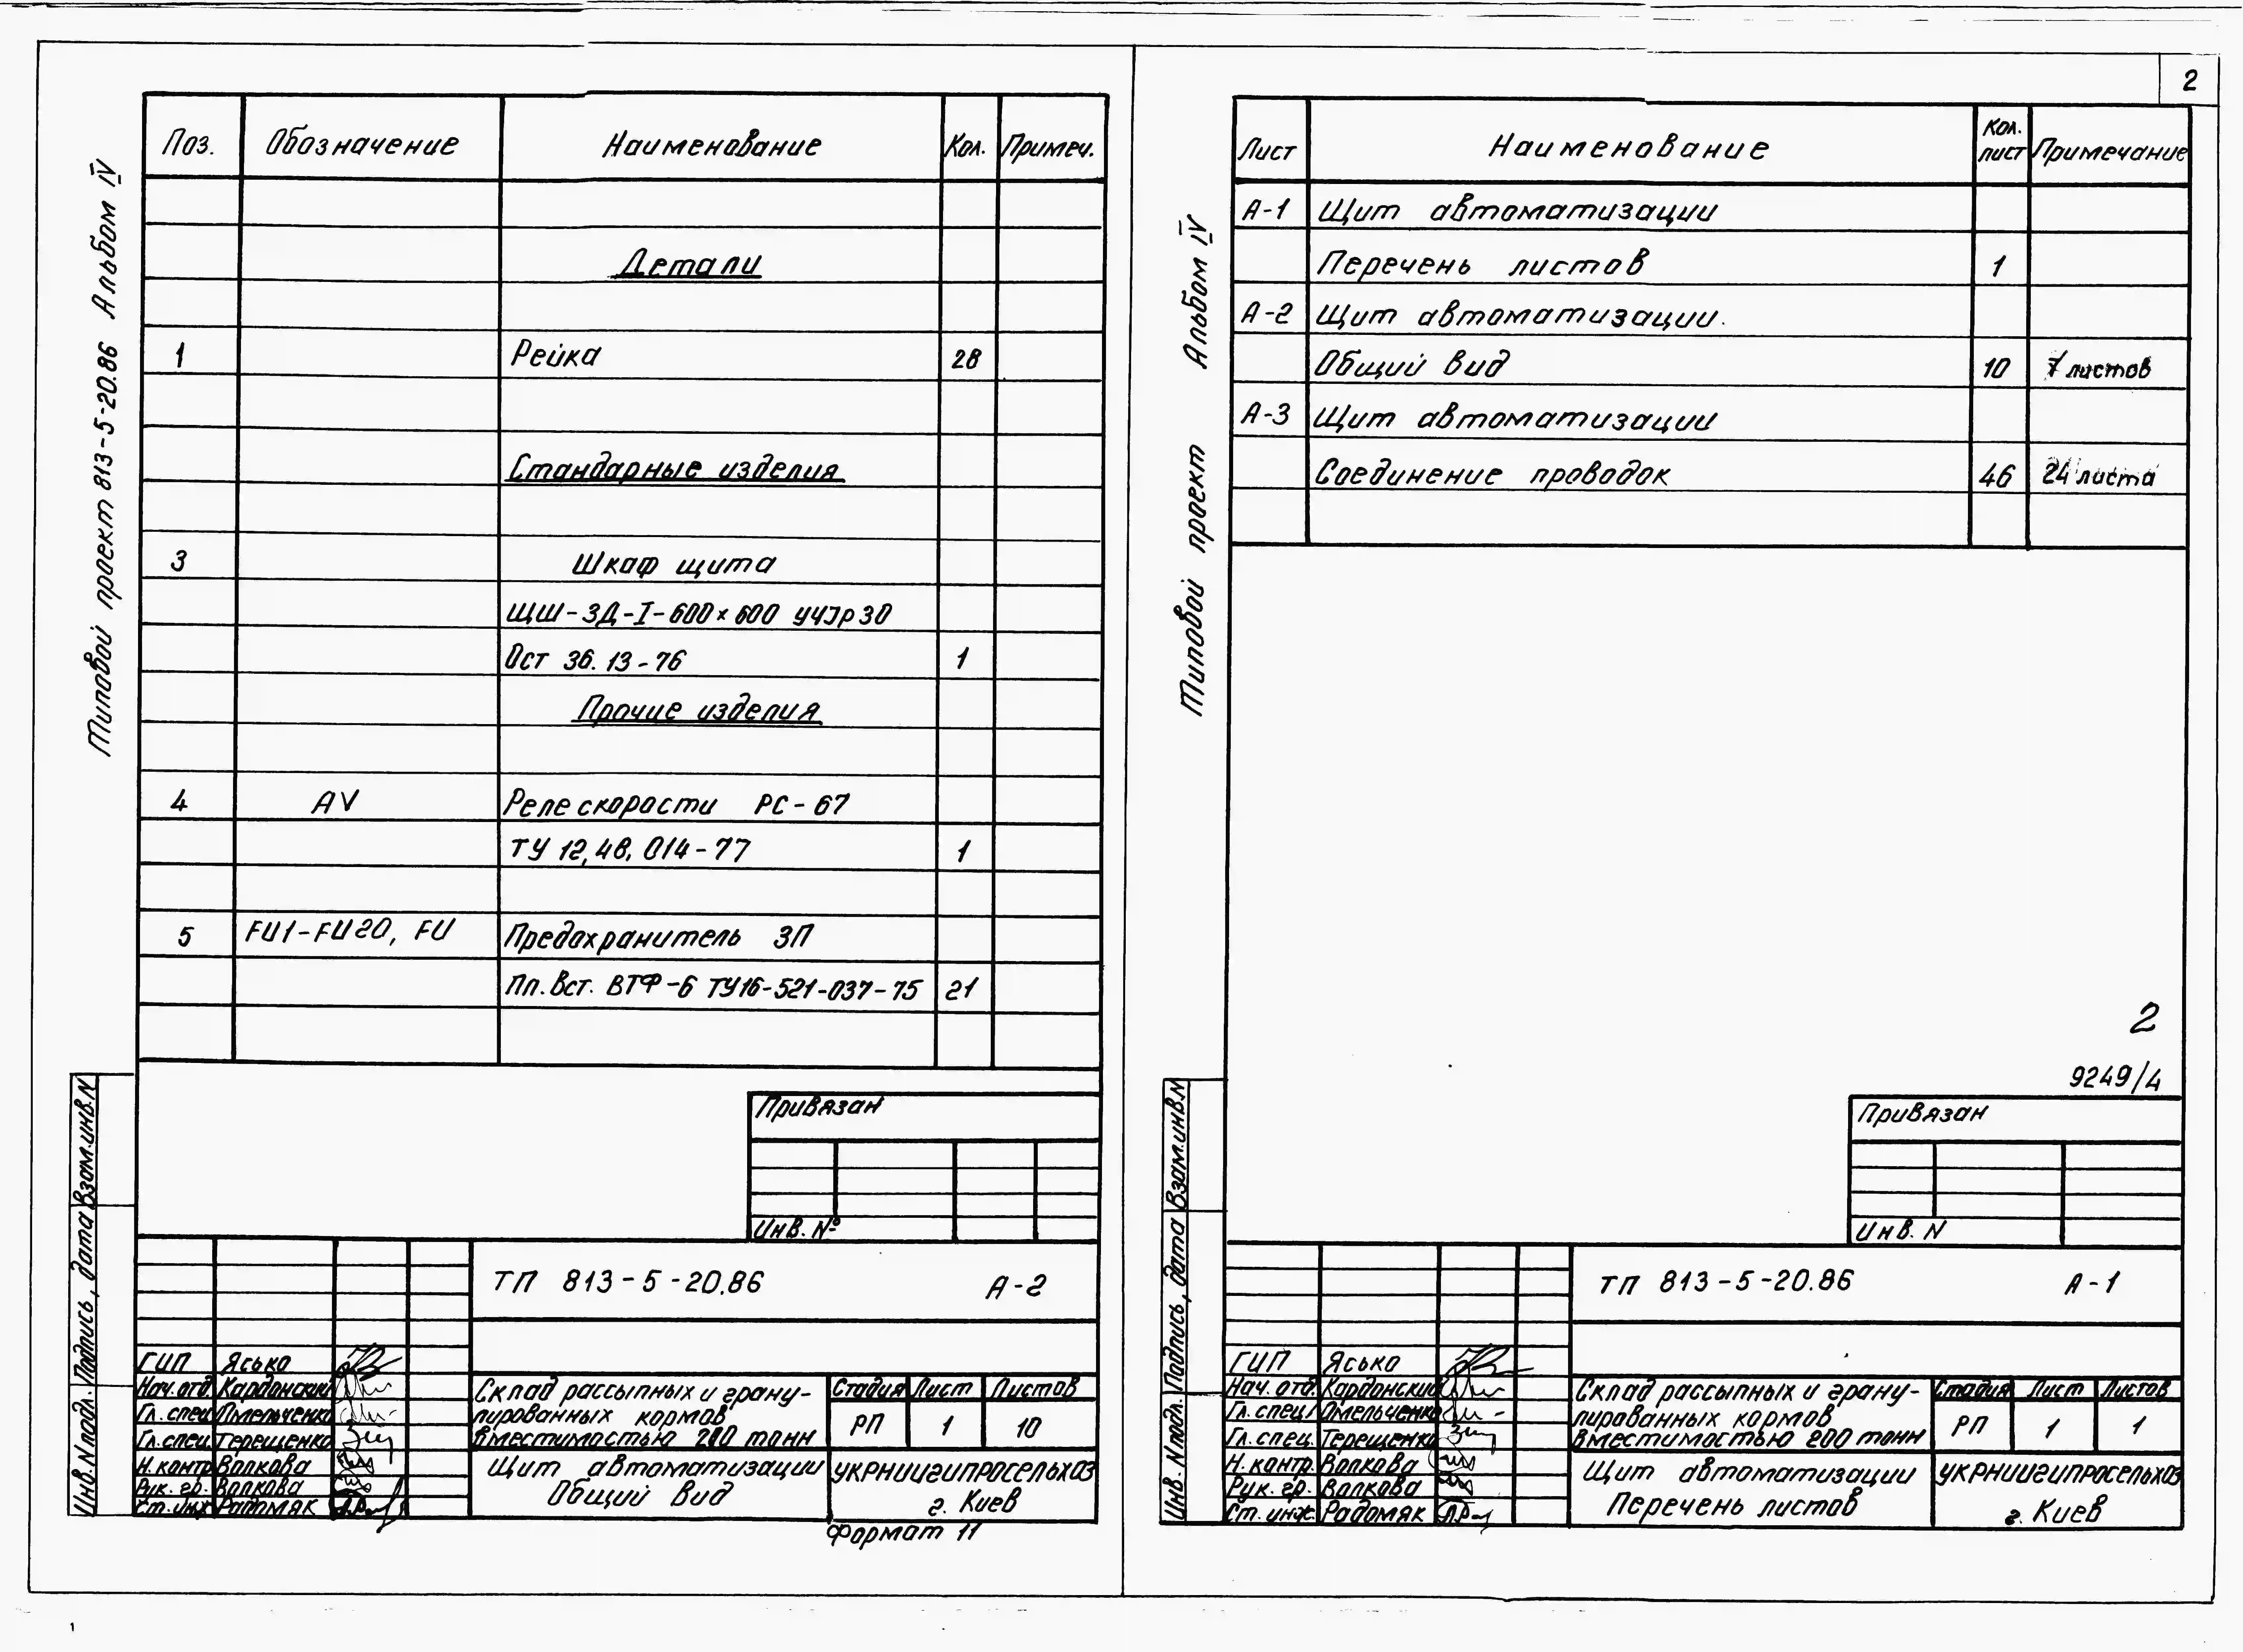 Типовой проект 813-5-20.86 Альбом IV
Поз. Обозначение Наименование Кол. Примеч.
Детали
1 Рейка 28
Стандарные изделия
3 Шкаф щита
ЩШ-ЗД-I-600×600 УЧЭР30
Ост 36.13-76 1
Прочие изделия
4 AV Реле скорости РС-67
ТУ 12,48, 014-77 1
5 FU1-FU20, FU Предохранитель ЗП
Пл. Вст. ВТФ-6 ТУ16-521-037-75 21
Привязан
Инв. №
Инв. N подл. Подпись, дата Взам.инв.N
ТП 813-5-20.86 А-2
ГИП Ясько
Нач. отд. Кардонский
Гл. спец. Омельченко
Гл. спец. Терещенко
Н. контр. Волкова
Рук. гр. Волкова
Ст. инж. Радомяк
Склад рассыпных и грану-
лированных кормов
вместимостью 200 тонн
Стадия Лист Листов
РП 1 10
Щит автоматизации
Общий вид
УКРНИИГИПРОСЕЛЬХОЗ
г. Киев
Формат 11
2
Типовой проект Альбом IV
Лист Наименование Кол. лист Примечание
А-1 Щит автоматизации
Перечень листов 1
А-2 Щит автоматизации.
Общий вид 10 7 листов
А-3 Щит автоматизации
Соединение проводок 46 24 листа
2
9249/4
Привязан
Инв. N
Инв. N подл. Подпись, дата Взам.инв.N
ТП 813-5-20.86 А-1
ГИП Ясько
Нач. отд. Кардонский
Гл. спец. Омельченко
Гл. спец. Терещенко
Н. контр. Волкова
Рук. гр. Волкова
Ст. инж. Радомяк
Склад рассыпных и грану-
лированных кормов
вместимостью 200 тонн
Стадия Лист Листов
РП 1 1
Щит автоматизации
Перечень листов
УКРНИИГИПРОСЕЛЬХОЗ
г. Киев
1